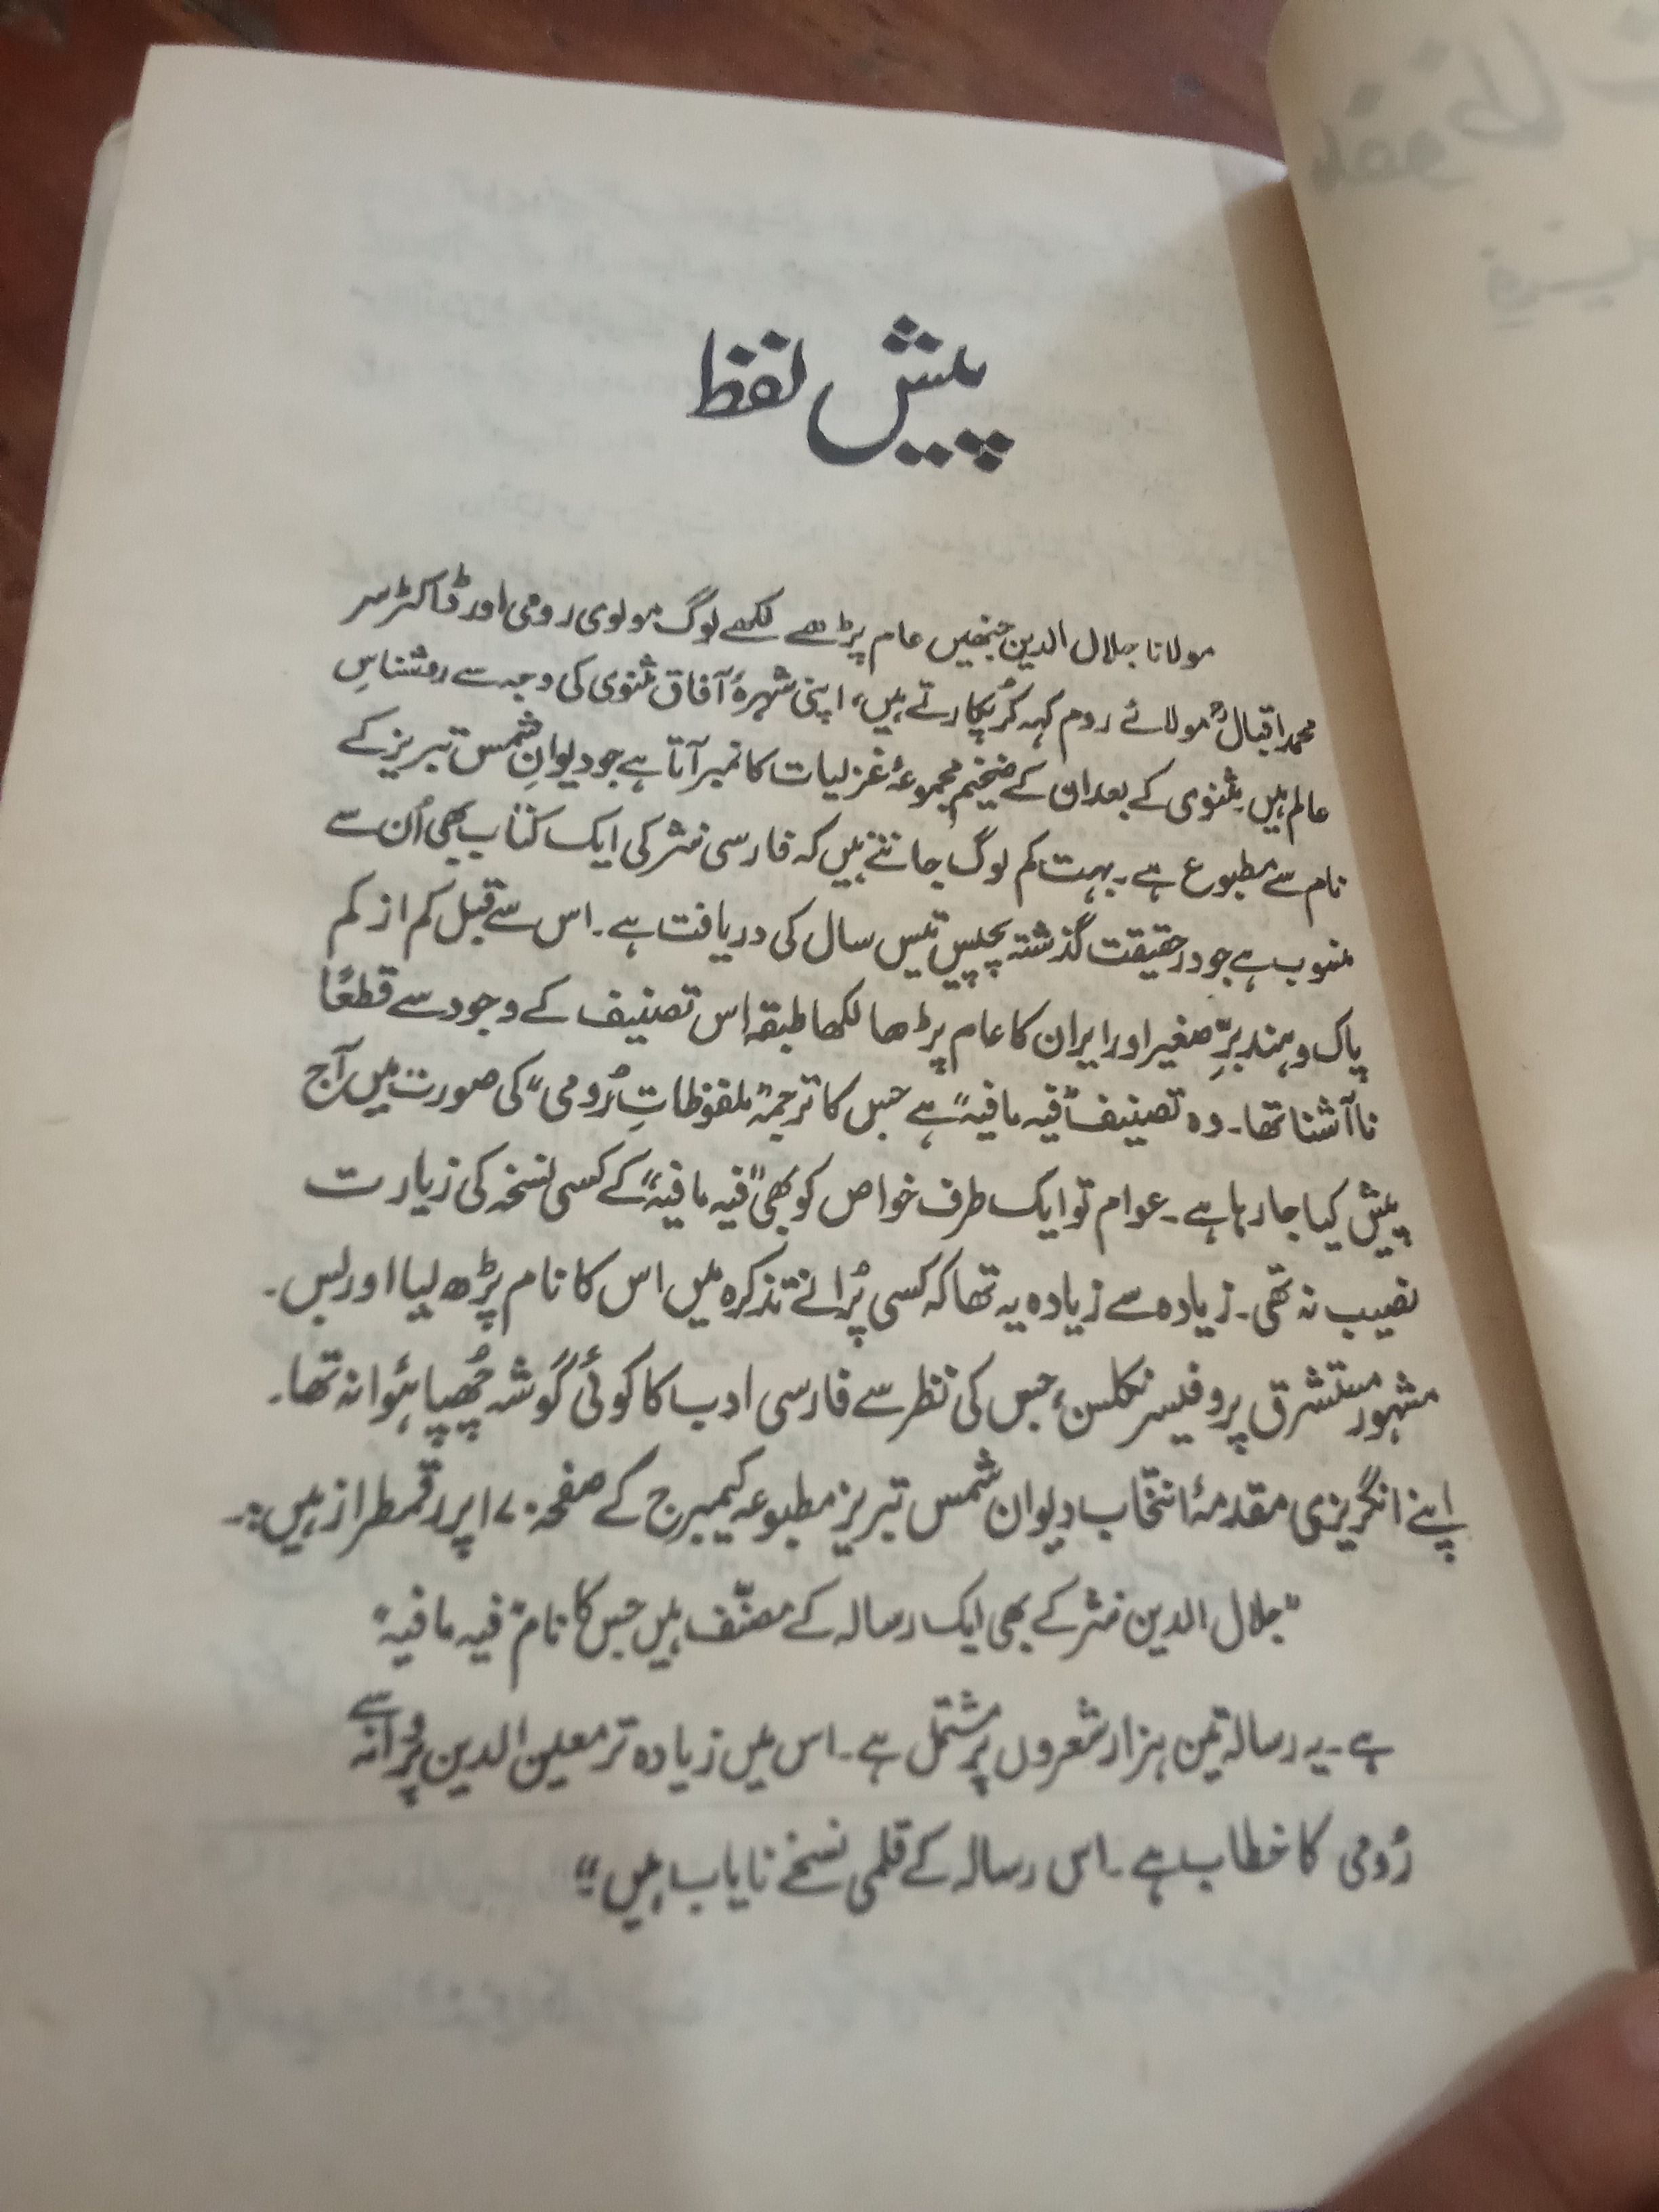 پیش لفظ
مولانا جلال الدین جنھیں عام پڑھے لکھے لوگ مولوی رومی اور ڈاکٹر سر
محمد اقبالؒ مولائے روم کہہ کر پکارتے ہیں، اپنی شہرۂ آفاق مثنوی کی وجہ سے روشناسِ
عالم ہیں۔ مثنوی کے بعد ان کے ضخیم مجموعۂ غزلیات کا نمبر آتا ہے جو دیوانِ شمس تبریز کے
نام سے مطبوع ہے۔ بہت کم لوگ جانتے ہیں کہ فارسی نثر کی ایک کتاب بھی اُن سے
منسوب ہے جو درحقیقت گذشتہ پچیس تیس سال کی دریافت ہے۔ اس سے قبل کم از کم
پاک و ہند برِّصغیر اور ایران کا عام پڑھا لکھا طبقہ اس تصنیف کے وجود سے قطعاً
ناآشنا تھا۔ وہ تصنیف "فیہ مافیہ" ہے جس کا ترجمہ "ملفوظاتِ رُومی" کی صورت میں آج
پیش کیا جا رہا ہے۔ عوام تو ایک طرف خواص کو بھی "فیہ مافیہ" کے کسی نسخہ کی زیارت
نصیب نہ تھی۔ زیادہ سے زیادہ یہ تھا کہ کسی پُرانے تذکرہ میں اس کا نام پڑھ لیا اور بس۔
مشہور مستشرق پروفیسر نکلسن، جس کی نظر سے فارسی ادب کا کوئی گوشہ چُھپا ہؤا نہ تھا۔
اپنے انگریزی مقدمۂ انتخاب دیوان شمس تبریز مطبوعہ کیمبرج کے صفحہ ۱۷۰ پر رقمطراز ہیں:۔
"جلال الدین نثر کے بھی ایک رسالہ کے مصنّف ہیں جس کا نام "فیہ مافیہ"
ہے۔ یہ رسالہ تین ہزار شعروں پر مشتمل ہے۔ اس میں زیادہ تر معین الدین پُروانہ سے
رُومی کا خطاب ہے۔ اس رسالہ کے قلمی نسخے نایاب ہیں"